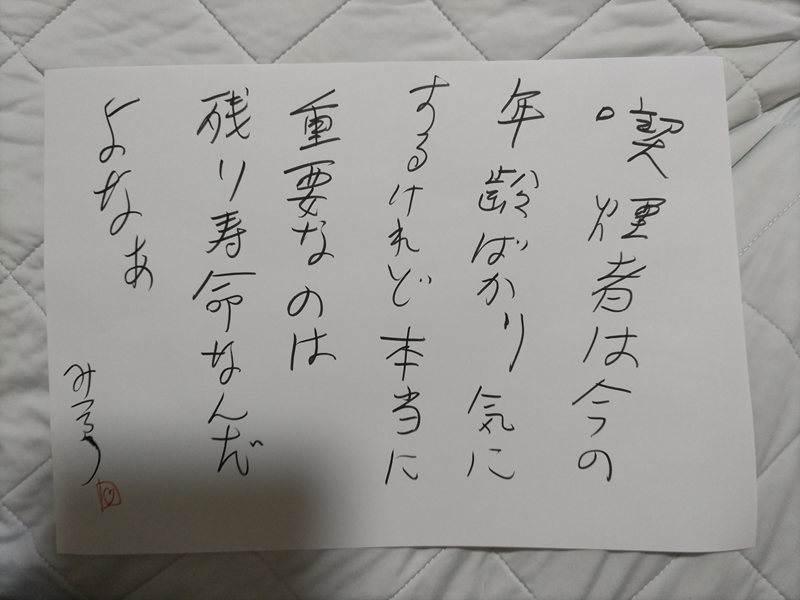 喫煙者は今の
年齢ばかり気に
するけれど本当に
重要なのは
残り寿命なんだ
よなぁ
みつを